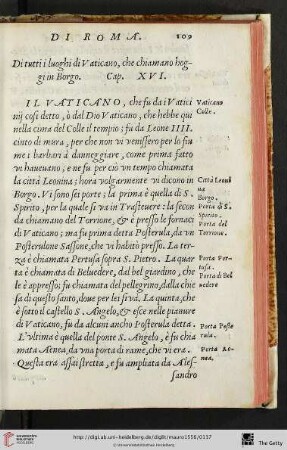 DI ROMA. 109
Di tutti i luoghi di Vaticano, che chiamano hog
gi in Borgo. Cap. XVI.
IL VATICANO, che fu da i Vatici
nij cosi detto, ò dal Dio Vaticano, che hebbe qui
nella cima del Colle il tempio; fu da Leone IIII.
cinto di mura, per che non vi venissero per lo fiu
me i barbari à danneggiare, come prima fatto
vi haueuano, e ne fu per ciò vn tempo chiamata
la città Leonina; hora volgarmente vi dicono in
Borgo. Vi sono sei porte; la prima è quella di S.
Spirito, per la quale si va in Trasteuere: la secon
da chiamano del Torrione, & è presso le fornaci
di Vaticano; ma fu prima detta Posterula, da vn
Posterulone Sassone, che vi habitò presso. La ter-
za è chiamata Pertusa sopra S. Pietro. La quar
ta è chiamata di Beluedere, dal bel giardino, che
le è appresso; fu chiamata del pellegrino, dalla chie
sa di questo santo, doue per lei si va. La quinta, che
è sotto il castello S. Angelo, & esce nelle pianure
di Vaticano, fu da alcuni ancho Posterula detta.
L'vltima è quella del ponte S. Angelo, è fu chia
mata Aenea, da vna porta di rame, che vi era.
Questa era assai stretta, e fu ampliata da Ales-
sandro
Vaticano
Colle.
Città Leoni
na
Borgo.
Porta di S.
Spirito.
Porta del
Torrione.
Porta Per-
tusa.
Porta di Bel
uedere
Porta Poste
rula.
Porta Ae-
nea.
http://digi.ub.uni-heidelberg.de/diglit/mauro1556/0157
© Universitätsbibliothek Heidelberg
The Getty